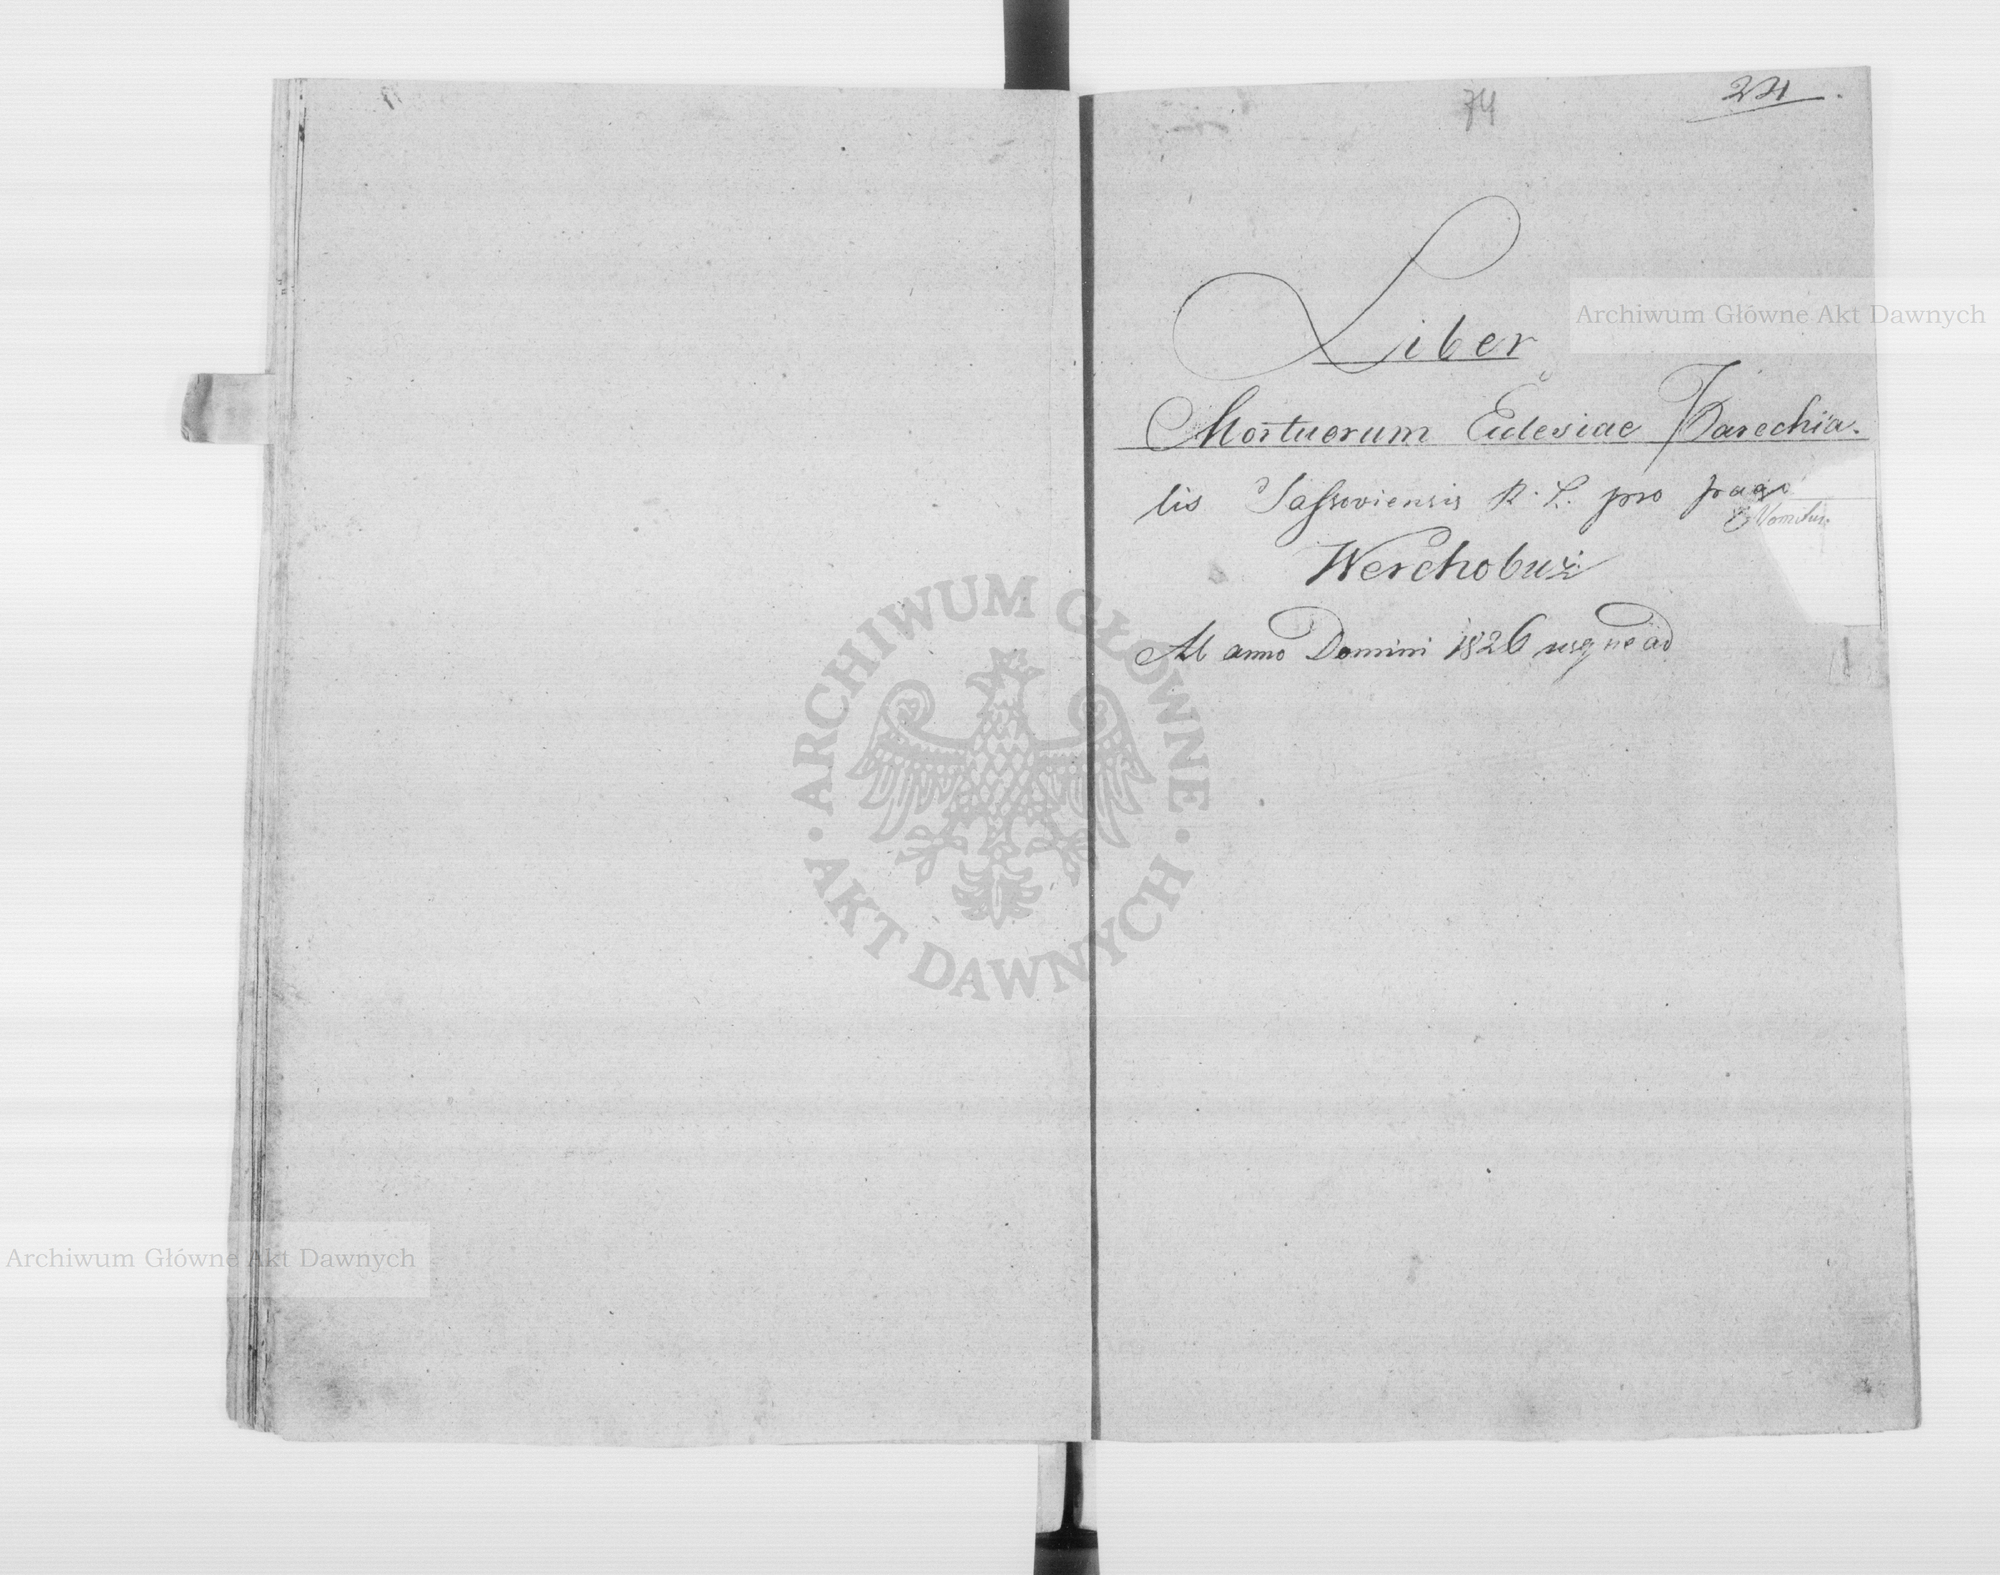 74
Liber
Mortuorum Eclesiae Parochia-
lis Sassoviensis R. L. pro pago
Werchobuż
Ab anno Domini 1826 usque ad
Archiwum Główne Akt Dawnych
ARCHIWUM GŁÓWNE
AKT DAWNYCH
Archiwum Główne Akt Dawnych